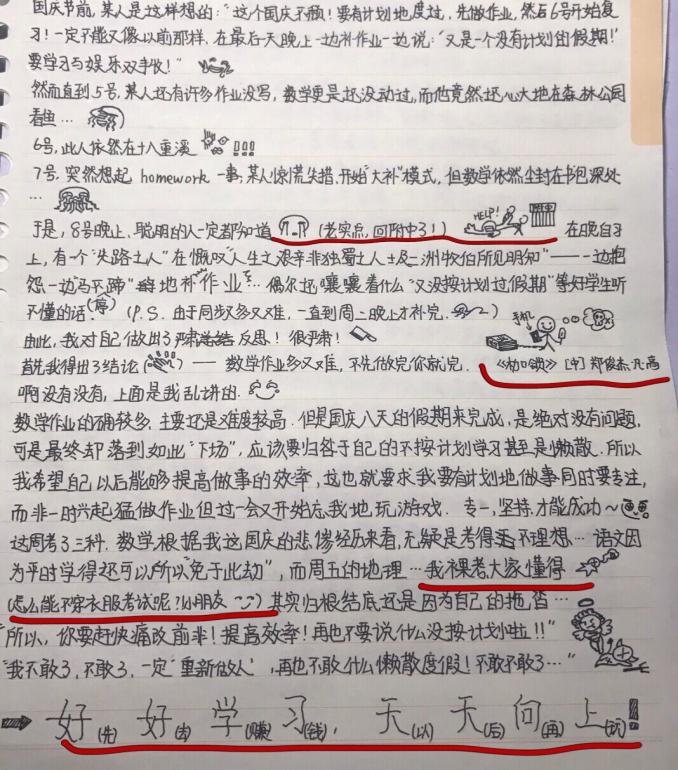 国庆节前,某人是这样想的:"这个国庆不颓!要有计划地度过,先做作业,然后6号开始复
习!一定不能又像以前那样,在最后一天晚上一边补作业一边说:'又是一个没有计划的假期!'
要学习与娱乐双丰收!"
然而直到5号,某人还有许多作业没写,数学更是还没动过,而他竟然还心大地在森林公园
看鱼…
6号,此人依然在十八重溪 !!!
7号,突然想起 homework 一事,某人惊慌失措,开始"大补"模式,但数学依然尘封在书包深处
…
于是,8号晚上,聪明的人一定都知道 (老实点,回附中了!) HELP! 在晚自习
上,有一个"失路之人"在慨叹"人生之艰辛非独蜀土人士及二洲牧伯所见明知"——一边抱
怨一边"马不蹄"地补作业…偶尔还嚷嚷着什么"又没按计划过假期"等好学生听
不懂的话。(哼) (P.S. 由于同步又多又难,一直到周二晚上才补完。)
由此,我对自己做出了严肃反思!很严肃! 手机
首先我得出了结论()——数学作业多又难,不先做完你就完. 《劝锁》[中]郑俊杰·凡高
啊没有没有,上面是我乱讲的.
数学作业的确较多,主要还是难度较高.但是国庆八天的假期来完成,是绝对没有问题,
可是最终却落到如此"下场",应该要归咎于自己的不按计划学习甚至是懒散.所以
我希望自己以后能够提高做事的效率,这也就要求我要有计划地做事同时要专注,
而非一时兴起猛做作业但过一会又开始忘我地玩游戏.专一,坚持,才能成功~
这周考了三科.数学根据我这国庆的悲惨经历来看,无疑是考得不理想…语文因
为平时学得还可以所以"免于此劫",而周五的地理…我裸考大家懂得
(怎么能不穿衣服考试呢?小朋友)其实归根结底还是因为自己的拖沓…
"所以,你要赶快痛改前非!提高效率!再也不要说什么没按计划啦!!"
"我不敢了,不敢了,一定'重新做人',再也不敢什么懒散度假!不敢不敢了…"
好(先)好(去)学(赚)习(钱),天(以)天(后)向(再)上(玩)!